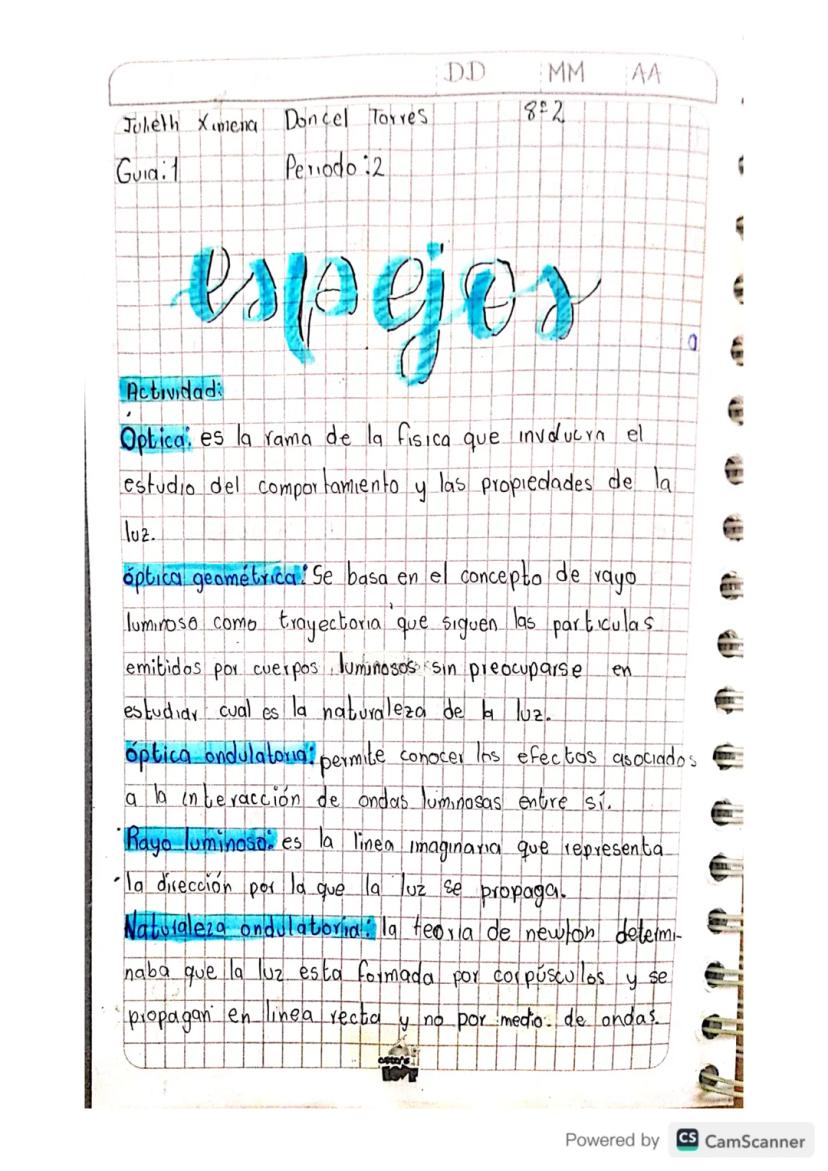 DD MM AA
Julieth Ximena Doncel Torres 8º2
Guia:1 Periodo:2
espejos
Actividad:
Óptica: es la rama de la fisica que involucra el
estudio del comportamiento y las propiedades de la
luz.
óptica geométrica: Se basa en el concepto de rayo
luminoso como trayectoria que siguen las particulas
emitidos por cuerpos luminosos sin preocuparse en
estudiar cual es la naturaleza de la luz.
óptica ondulatoria: permite conocer los efectos asociados
a la interacción de ondas luminosas entre sí.
Rayo luminoso: es la linea imaginaria que representa
la dirección por la que la luz se propaga.
Naturaleza ondulatoria: la teoria de newton determi-
naba que la luz esta formada por corpúsculos y se
propagan en linea recta y no por medio de ondas.
LOVE
Powered by CS CamScanner